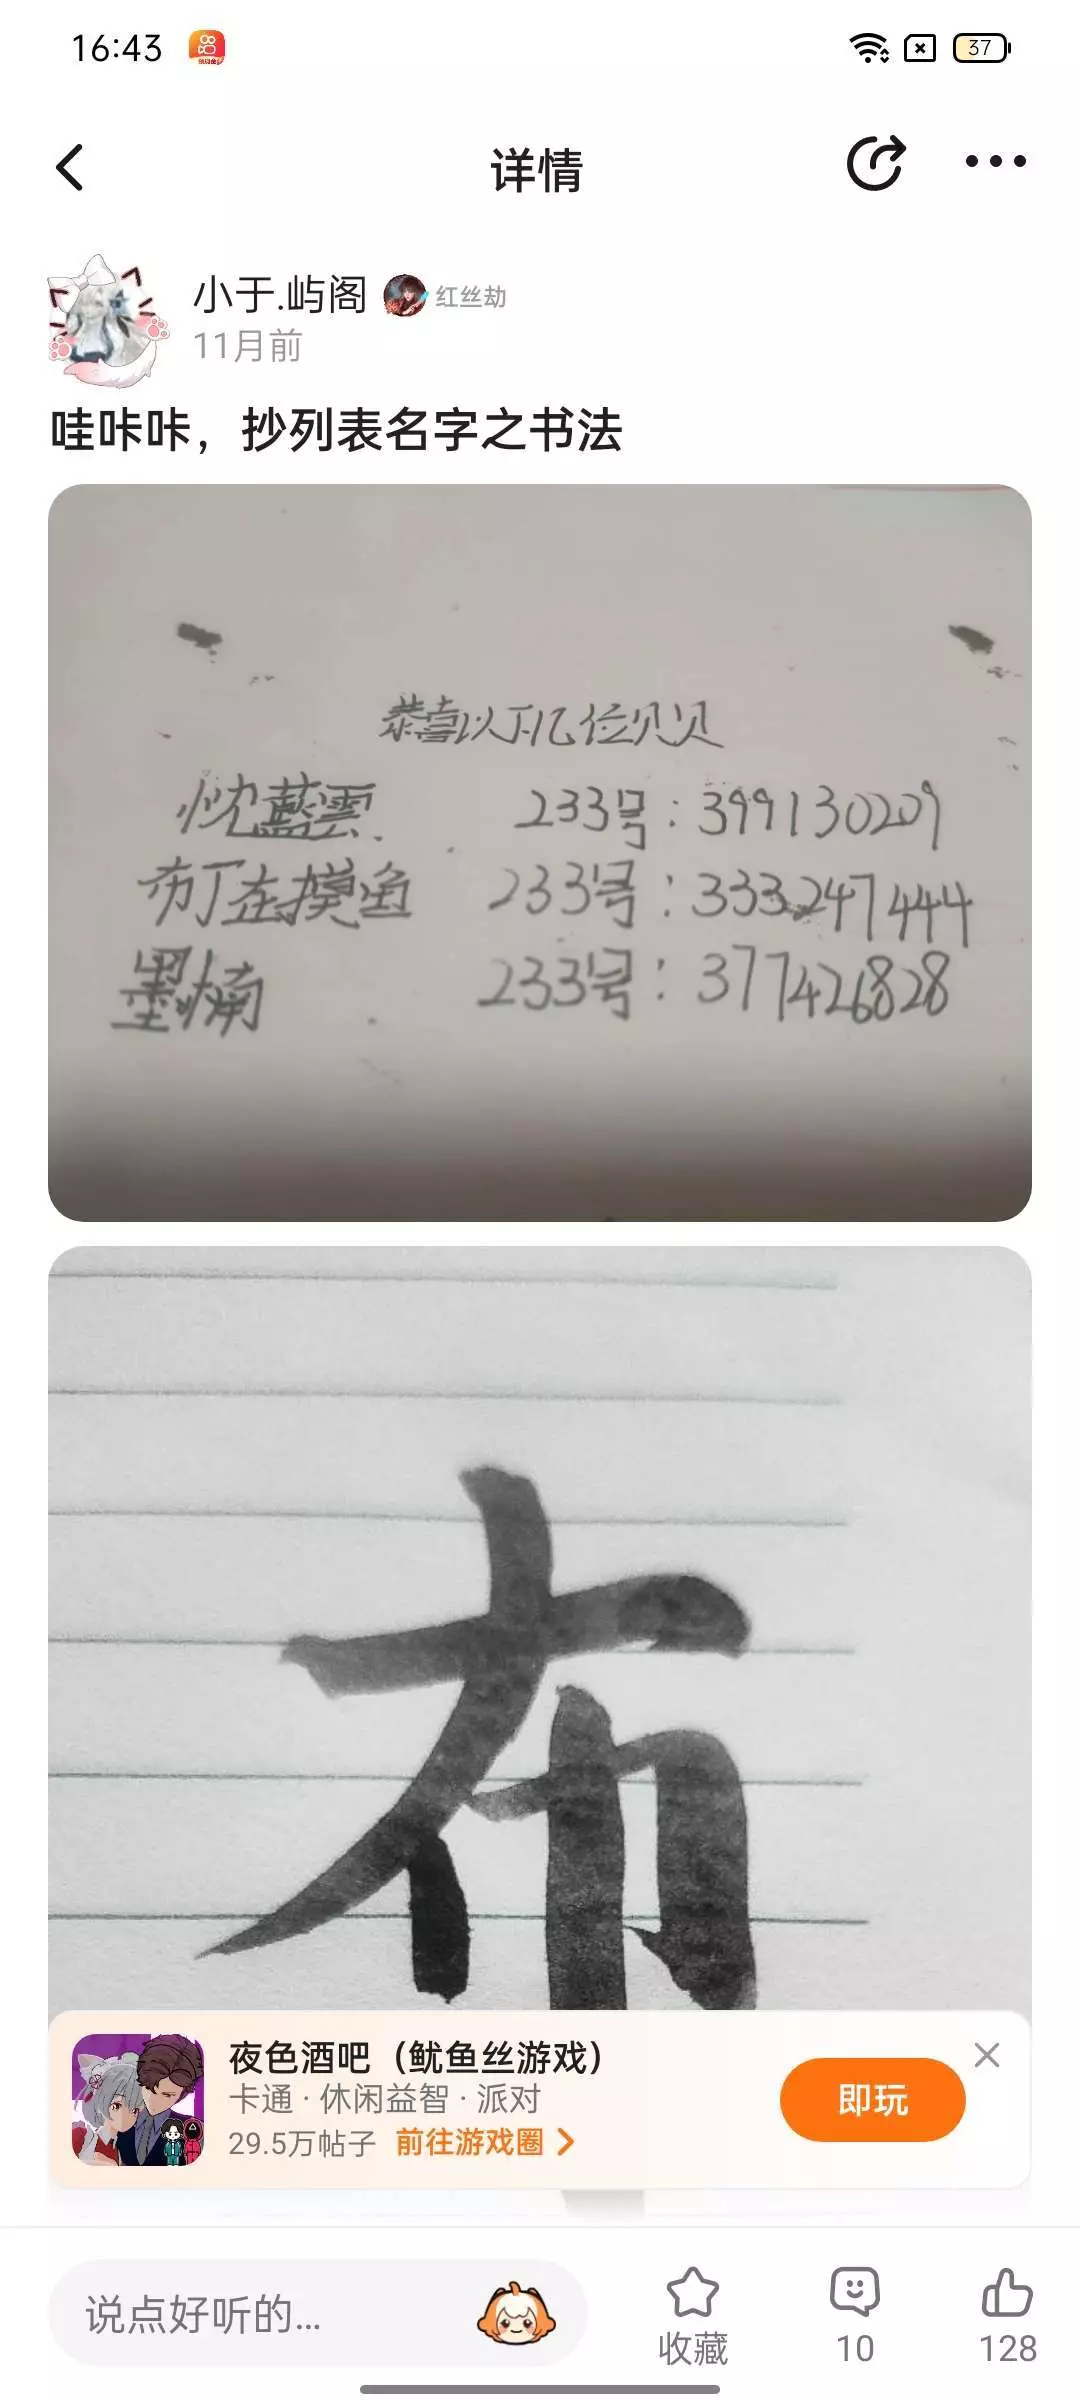 16:43
37
详情
小于.屿阁 红丝劫
11月前
哇咔咔，抄列表名字之书法
恭喜以下几位贝贝
忱藍雲. 233号：399130209
布丁在摸鱼 233号：333247444
墨楠 233号：377426828
布
夜色酒吧（鱿鱼丝游戏）
卡通·休闲益智·派对
即玩
29.5万帖子 前往游戏圈
说点好听的...
收藏
10
128